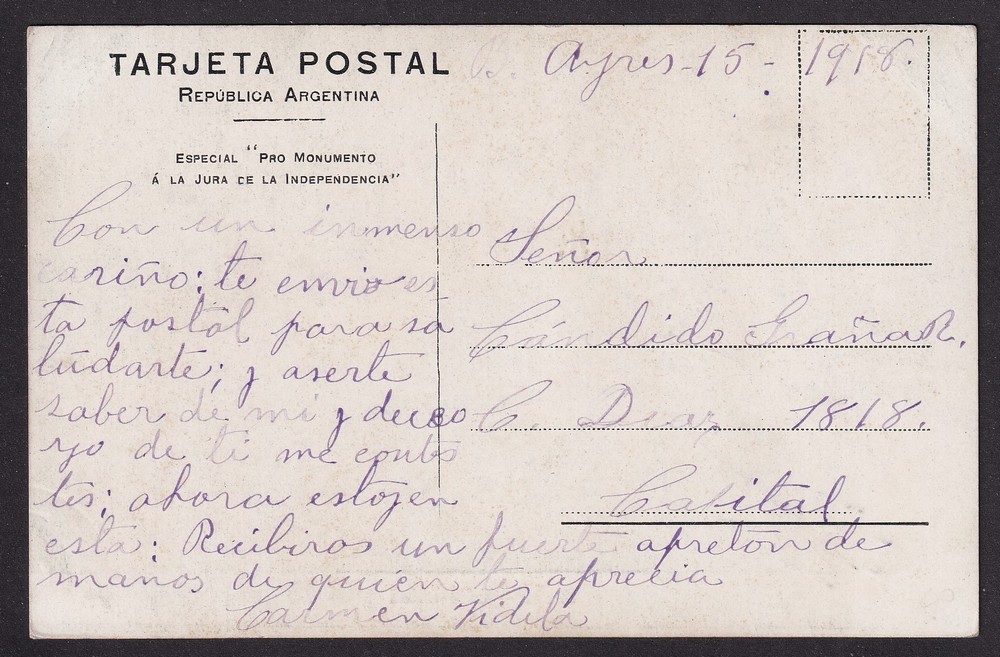 TARJETA POSTAL
REPÚBLICA ARGENTINA
ESPECIAL "PRO MONUMENTO
Á LA JURA DE LA INDEPENDENCIA"
B. Ayres-15-1918.
Con un inmenso
cariño: te envio es
ta postal para sa
ludarte; y aserte
saber de mi y deceo
yo de ti me contes
tes; ahora estoy en
esta: Recibiras un fuerte apretón de
manos de quien te aprecia
Carmen Videla
Señor
Cándido Graña R.
C. Diaz 1818.
Capital